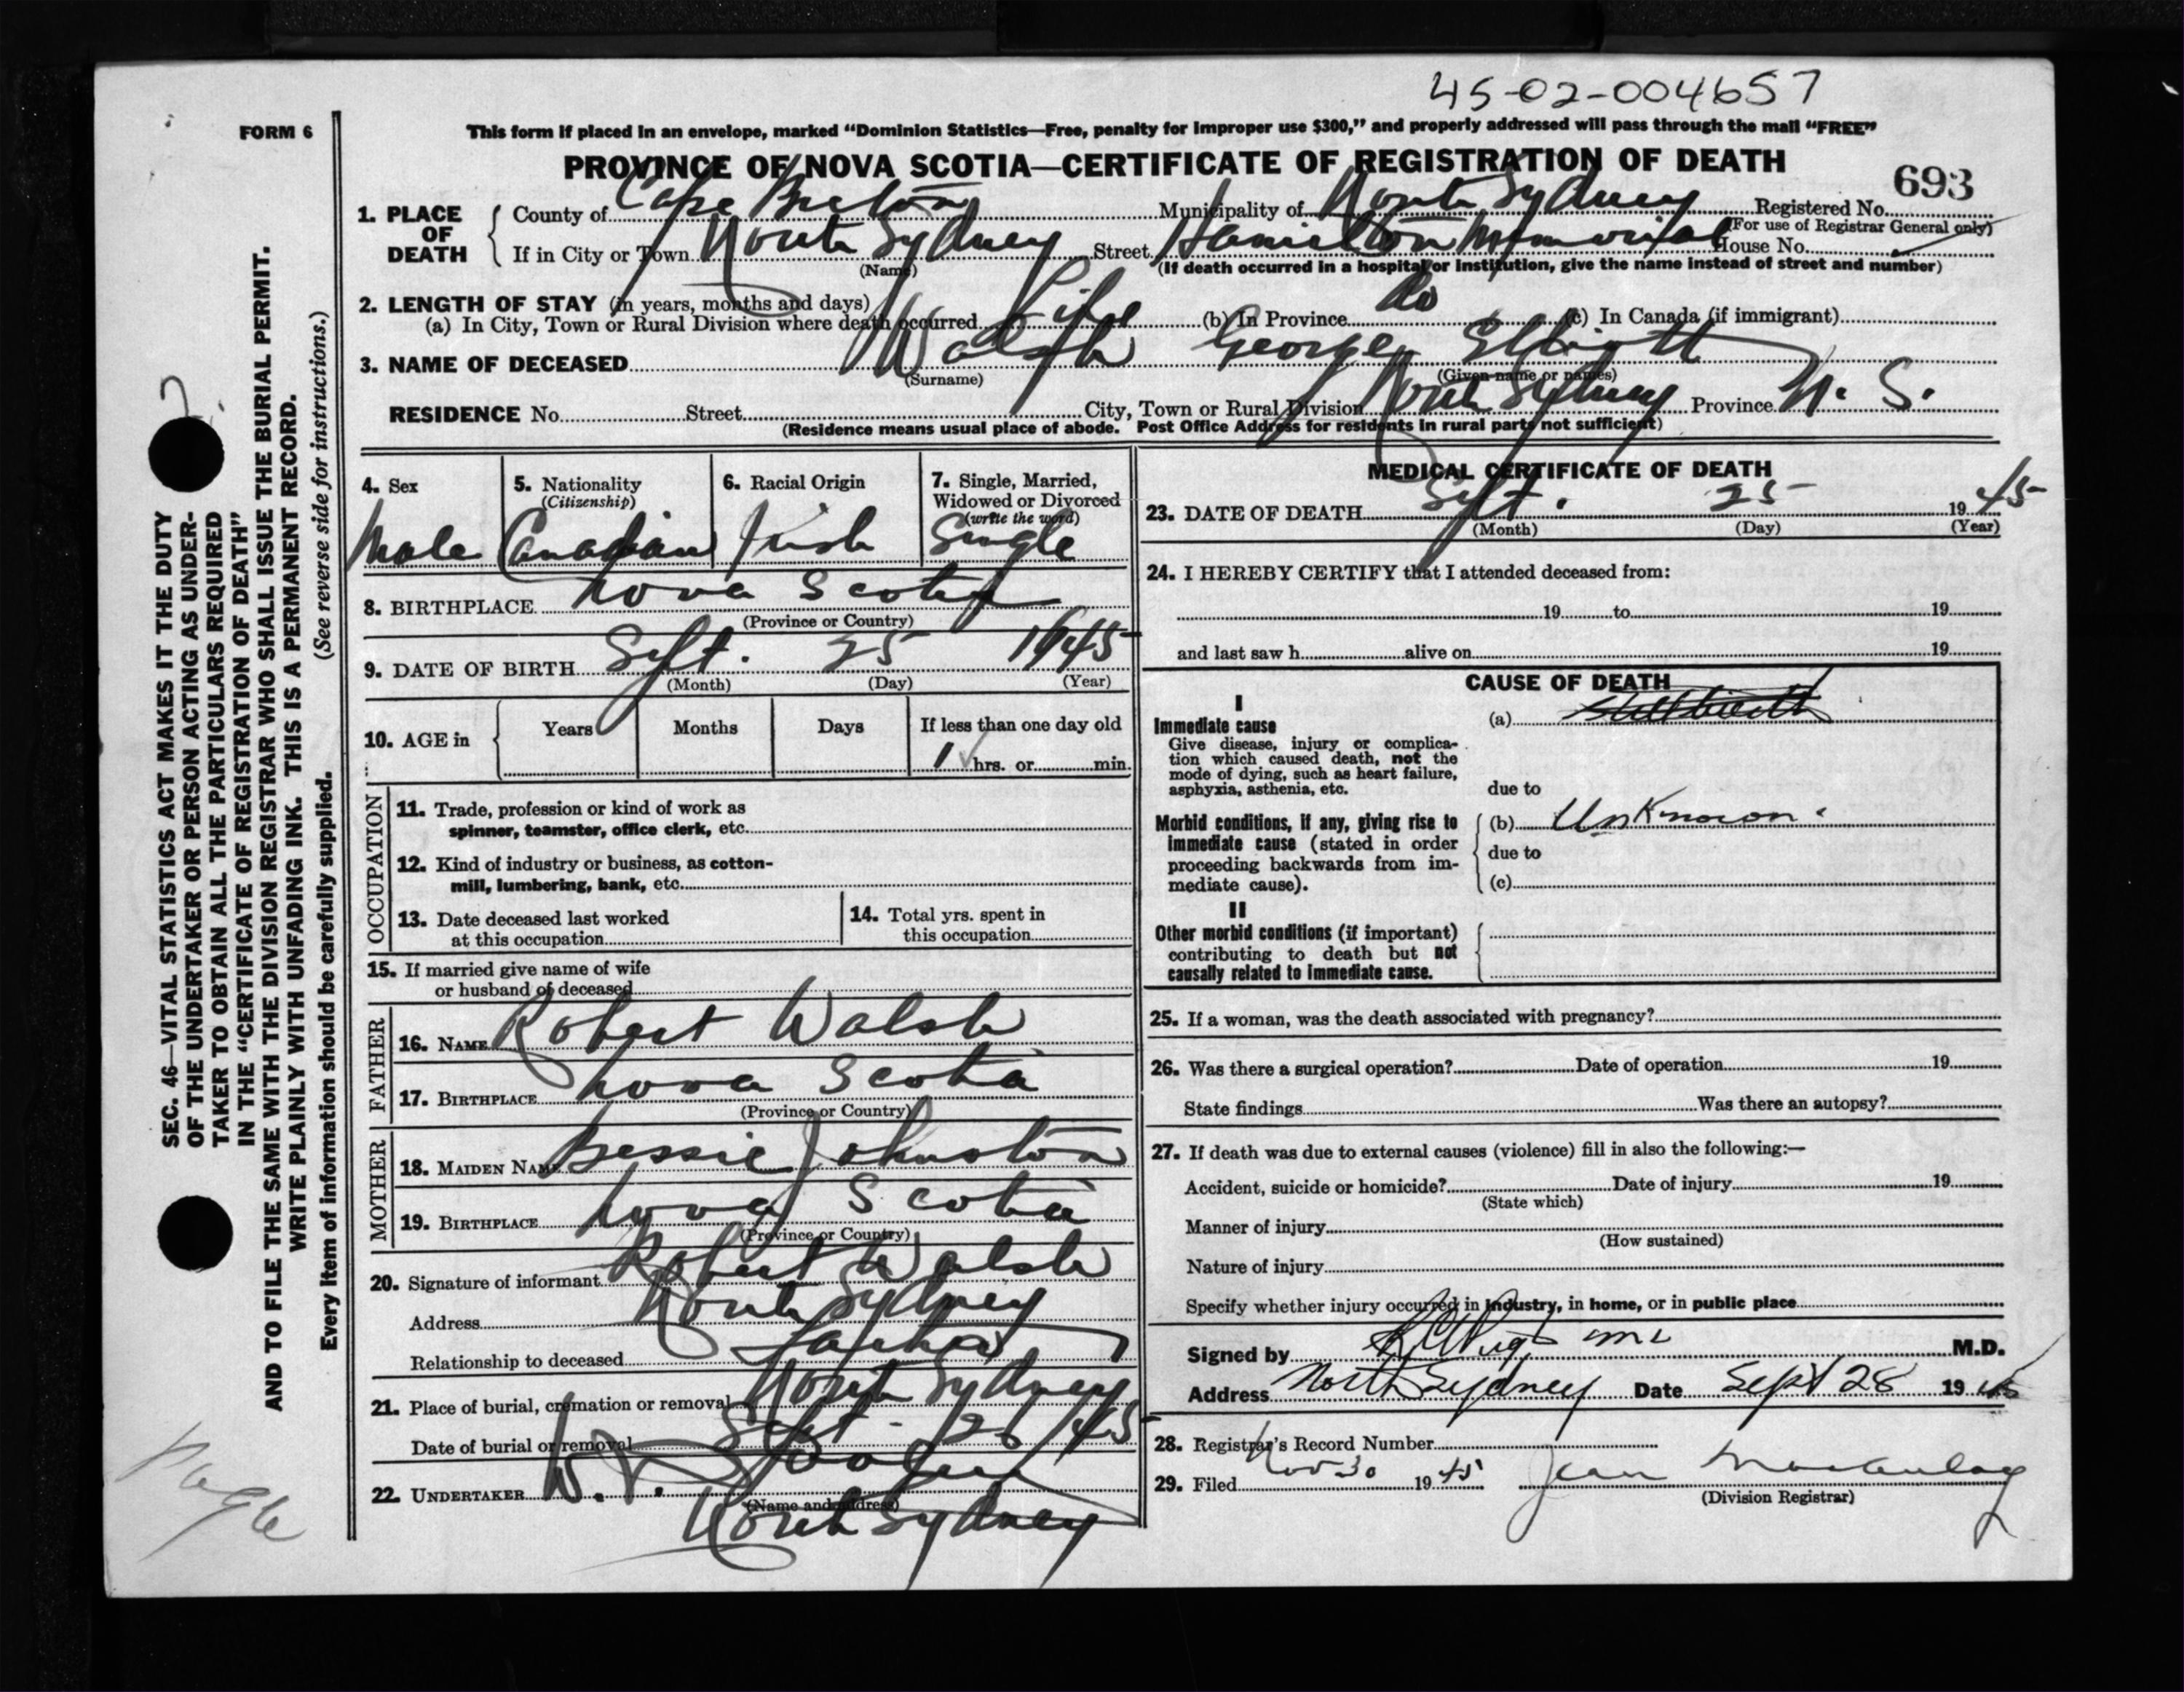 45-02-004657
FORM 6
This form if placed in an envelope, marked “Dominion Statistics—Free, penalty for improper use $300,” and properly addressed will pass through the mail “FREE”
PROVINCE OF NOVA SCOTIA—CERTIFICATE OF REGISTRATION OF DEATH
693
1. PLACE OF DEATH
County of Cape Breton Municipality of North Sydney Registered No.
(For use of Registrar General only)
If in City or Town North Sydney Street Hamilton Memorial House No.
(Name) (If death occurred in a hospital or institution, give the name instead of street and number)
2. LENGTH OF STAY (in years, months and days)
(a) In City, Town or Rural Division where death occurred Life (b) In Province Do (c) In Canada (if immigrant)
3. NAME OF DECEASED Walsh George Elliott
(Surname) (Given name or names)
RESIDENCE No. Street City, Town or Rural Division North Sydney Province N. S.
(Residence means usual place of abode. Post Office Address for residents in rural parts not sufficient)
4. Sex
Male
5. Nationality
(Citizenship)
Canadian
6. Racial Origin
Irish
7. Single, Married,
Widowed or Divorced
(write the word)
Single
8. BIRTHPLACE Nova Scotia
(Province or Country)
9. DATE OF BIRTH Sept. 25 1945
(Month) (Day) (Year)
10. AGE in
Years Months Days If less than one day old
1 hrs. or min.
OCCUPATION
11. Trade, profession or kind of work as
spinner, teamster, office clerk, etc.
12. Kind of industry or business, as cotton-
mill, lumbering, bank, etc.
13. Date deceased last worked
at this occupation
14. Total yrs. spent in
this occupation
15. If married give name of wife
or husband of deceased
FATHER
16. NAME Robert Walsh
17. BIRTHPLACE Nova Scotia
(Province or Country)
MOTHER
18. MAIDEN NAME Bessie Johnston
19. BIRTHPLACE Nova Scotia
(Province or Country)
20. Signature of informant Robert Walsh
Address North Sydney
Relationship to deceased Father
21. Place of burial, cremation or removal North Sydney
Date of burial or removal Sept. 26/45
22. UNDERTAKER W. R.
(Name and address)
North Sydney
MEDICAL CERTIFICATE OF DEATH
23. DATE OF DEATH Sept. 25 1945
(Month) (Day) (Year)
24. I HEREBY CERTIFY that I attended deceased from:
19 to 19
and last saw h alive on 19
CAUSE OF DEATH
I
Immediate cause
Give disease, injury or complica-
tion which caused death, not the
mode of dying, such as heart failure,
asphyxia, asthenia, etc.
(a) Stillbirth
due to
Morbid conditions, if any, giving rise to
immediate cause (stated in order
proceeding backwards from im-
mediate cause).
(b) Unknown.
due to
(c)
II
Other morbid conditions (if important)
contributing to death but not
causally related to immediate cause.
25. If a woman, was the death associated with pregnancy?
26. Was there a surgical operation? Date of operation 19
State findings Was there an autopsy?
27. If death was due to external causes (violence) fill in also the following:—
Accident, suicide or homicide? Date of injury 19
(State which)
Manner of injury
(How sustained)
Nature of injury
Specify whether injury occurred in industry, in home, or in public place
Signed by M.D.
Address North Sydney Date Sept 28 1945
28. Registrar's Record Number
29. Filed Nov 30 1945 Jean
(Division Registrar)
SEC. 46—VITAL STATISTICS ACT MAKES IT THE DUTY
OF THE UNDERTAKER OR PERSON ACTING AS UNDER-
TAKER TO OBTAIN ALL THE PARTICULARS REQUIRED
IN THE “CERTIFICATE OF REGISTRATION OF DEATH”
AND TO FILE THE SAME WITH THE DIVISION REGISTRAR WHO SHALL ISSUE THE BURIAL PERMIT.
WRITE PLAINLY WITH UNFADING INK. THIS IS A PERMANENT RECORD.
Every item of information should be carefully supplied. (See reverse side for instructions.)